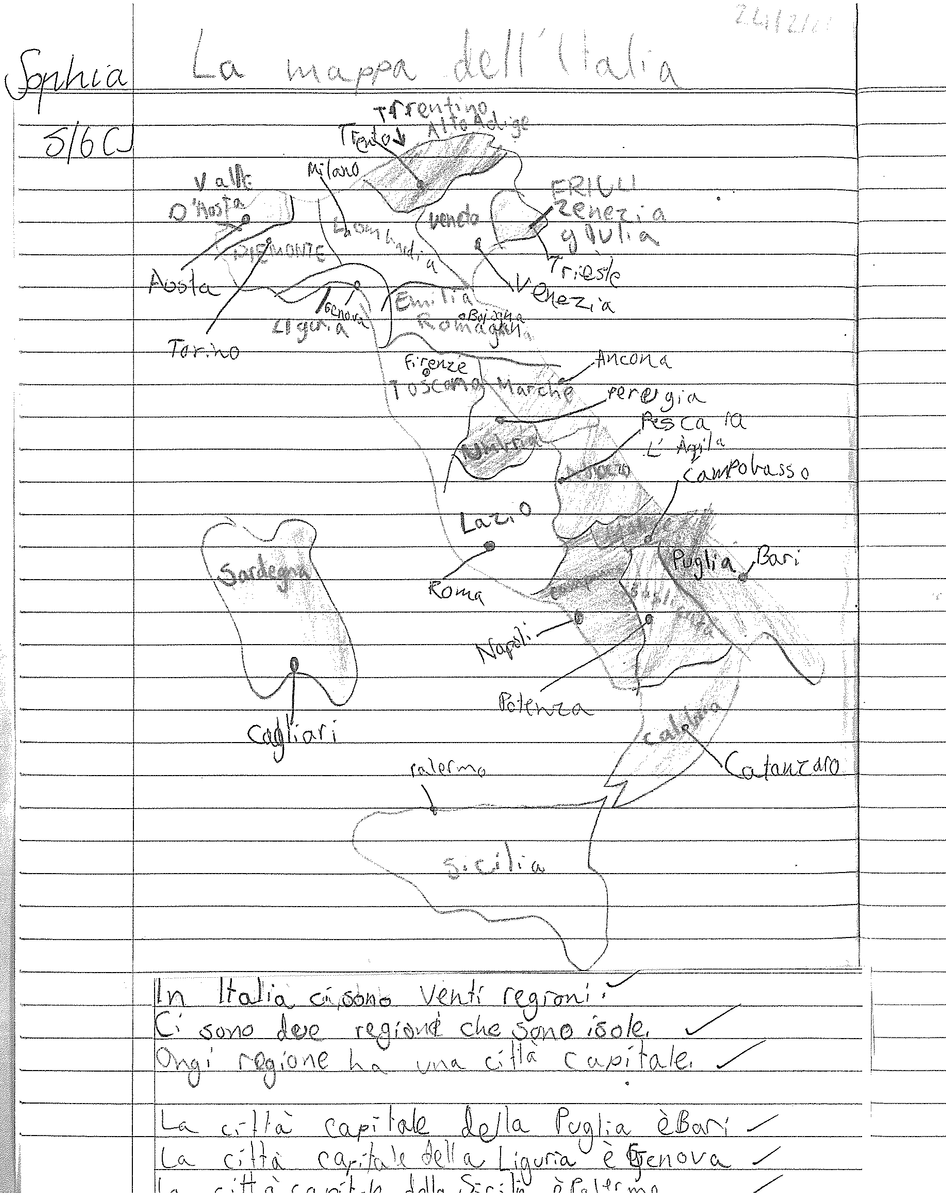 24/2/
Sophia
La mappa dell'Italia
5/6 CJ
Trentino
Alto Adige
Trento
Milano
Valle
D'Aosta
FRIULI
Zenezia
giulia
Veneto
Lombardia
PIEMONTE
Aosta
Trieste
Venezia
Genova
Liguria
Emilia
Romagna
Bologna
Torino
Firenze
Toscana
Marche
Ancona
Perugia
Umbria
Pescara
L'Aquila
Campobasso
Lazio
Roma
Sardegna
Puglia
Bari
Napoli
Potenza
Cagliari
Calabria
Catanzaro
Palermo
Sicilia
In Italia ci sono venti regioni.
Ci sono due regioni che sono isole.
Ongi regione ha una città capitale.
La città capitale della Puglia è Bari
La città capitale della Liguria è Genova
La città capitale della Sicilia è Palermo